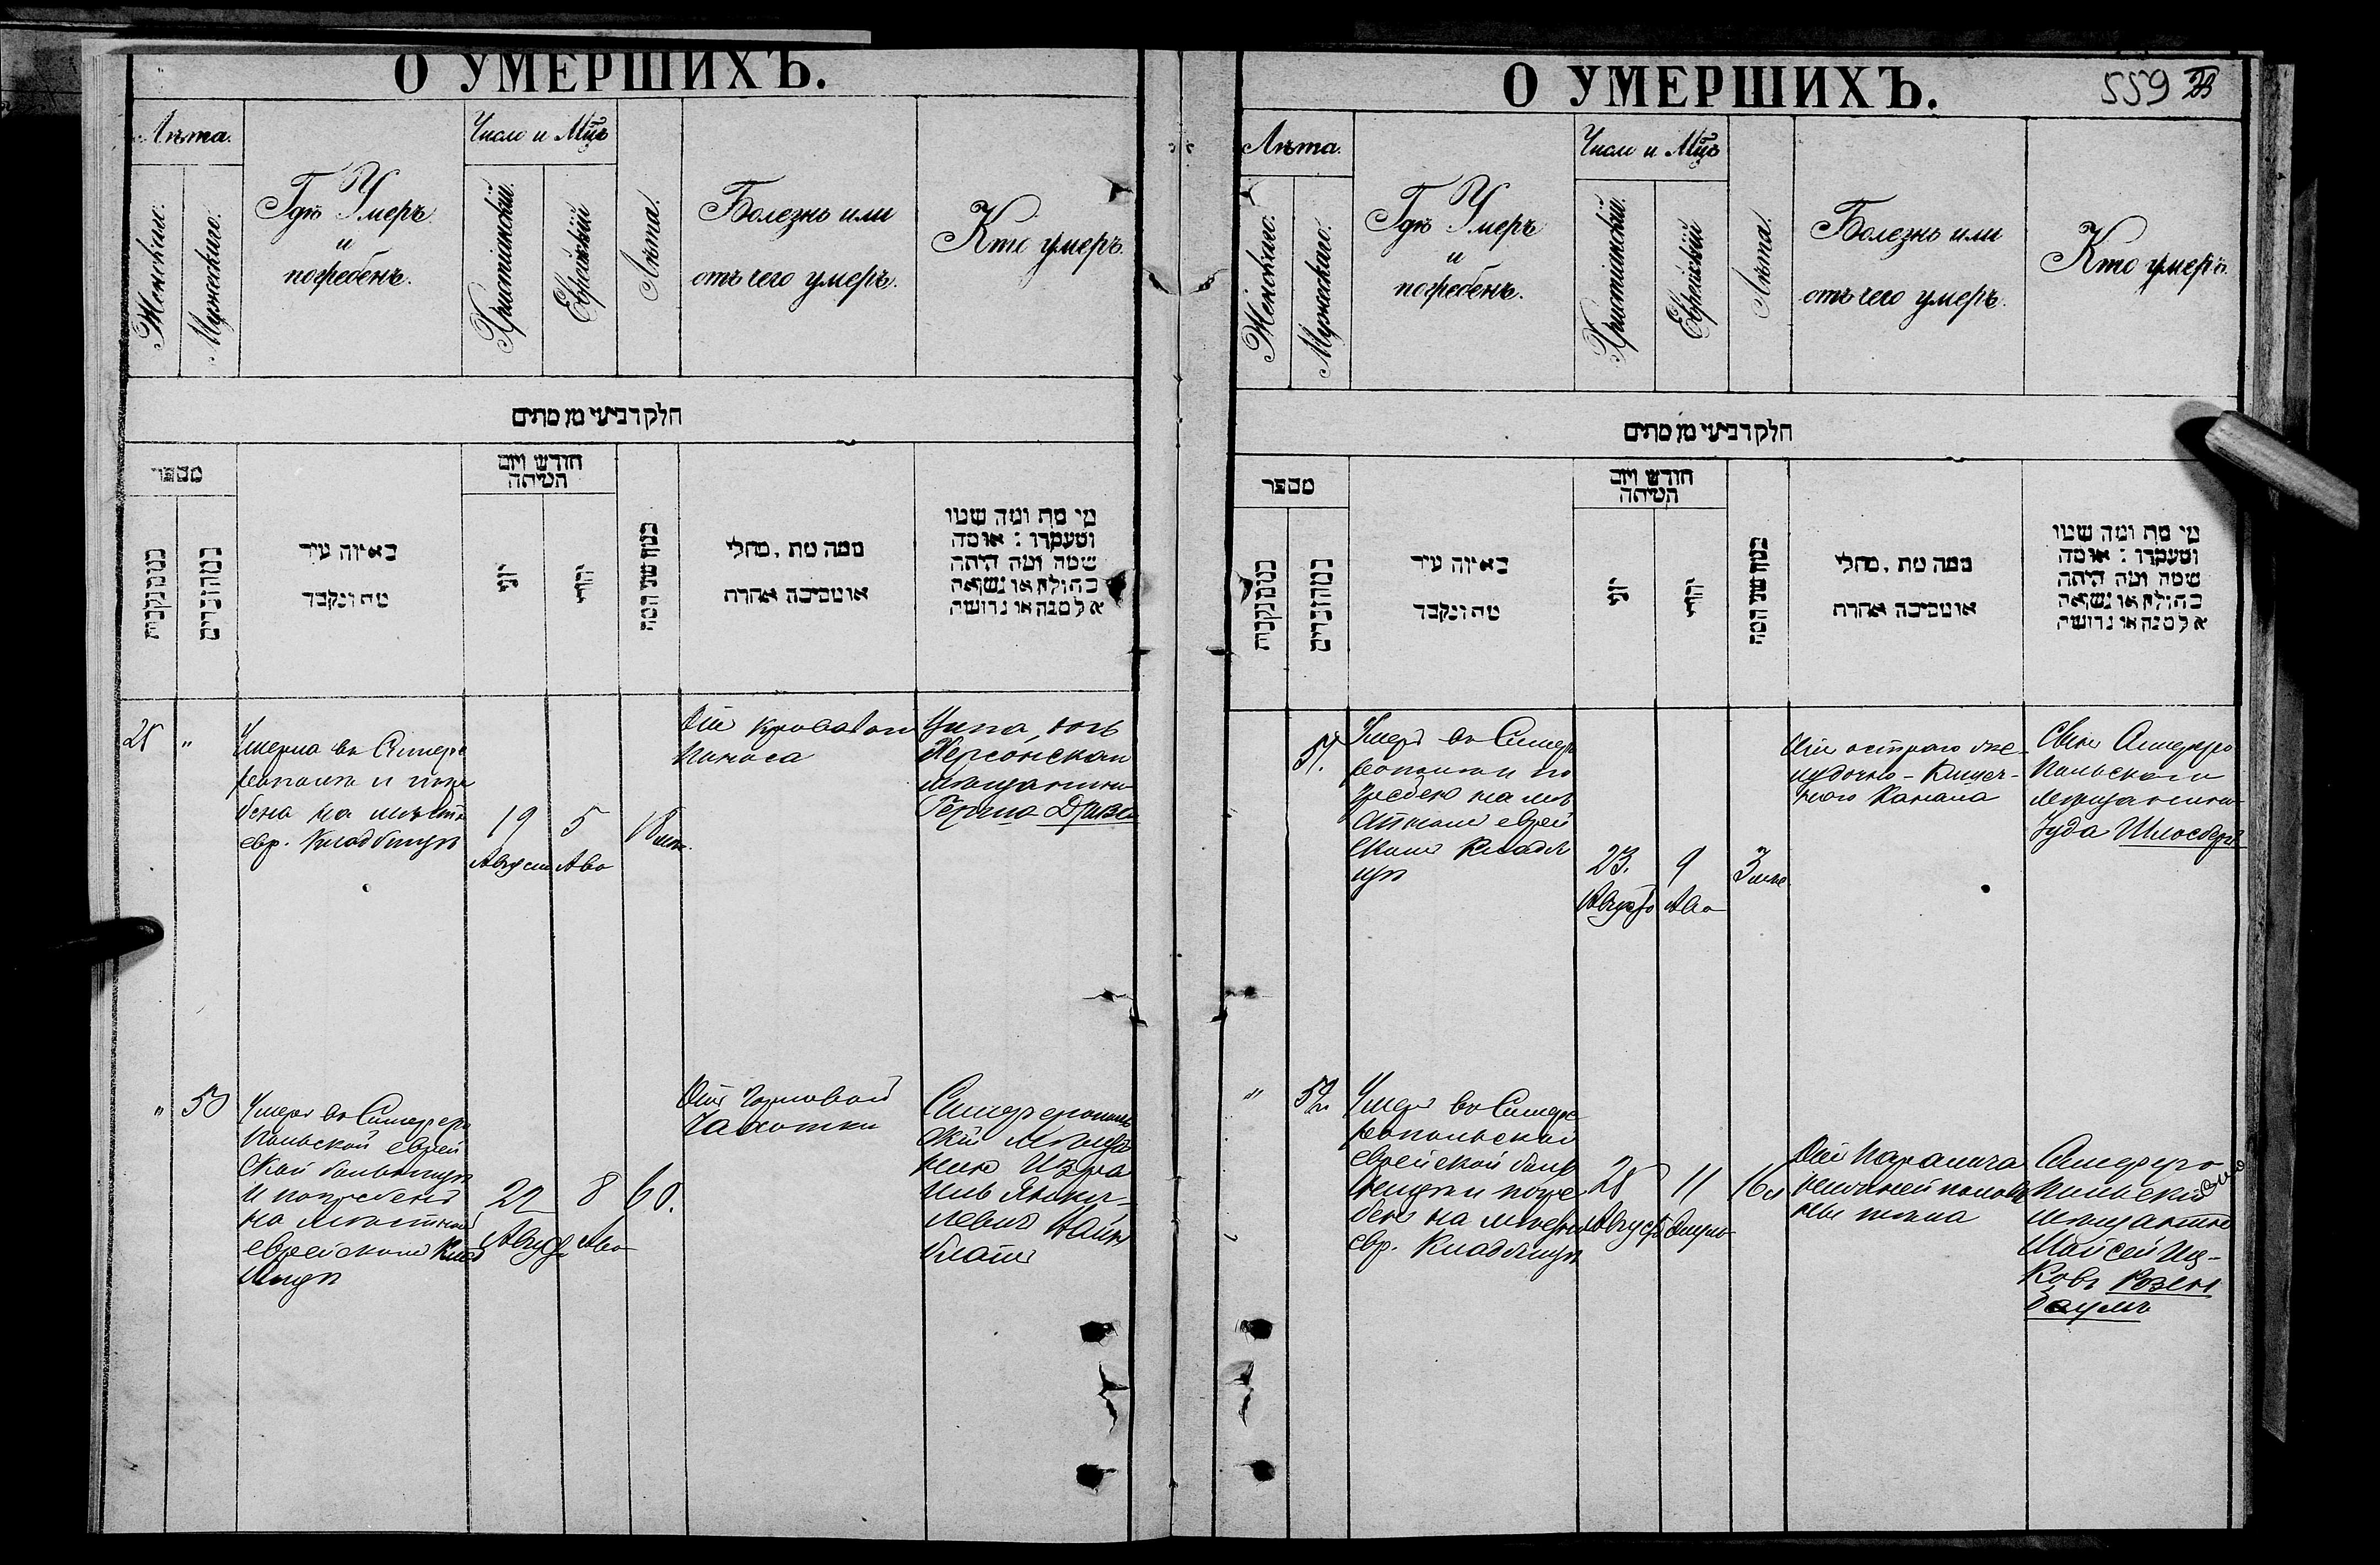 О УМЕРШИХЪ.
Лѣта.
Женскаго.
Мужескаго.
Гдѣ Умеръ
и
погребенъ.
Число и Мцъ
Христіанскій.
Еврейскій
Лѣта.
Болезнь или
отъ чего умеръ.
Кто умеръ.
חלק רביעי מן מתים
מספר
מהנקבות
מהזכרים
באיזה עיר
מת ונקבר
חודש ויום
המיתה
יוני
יהודי
כמה שני המת
ממה מת, מחלי
או מסיבה אחרת
מי מת ומה שמו
ומעמדו : או מה
שמה ומה היתה
בתולה או נשואה
אלמנה או גרושה
28 "
Умерла въ Симфе
рополѣ и погре
бена на мѣстн
евр. Кладбищѣ
19
Август
5
Аво
Отъ кроваваго
поноса
Ципа, дочь
Херсонскаго
мѣщанина
Герша
" 50
Умеръ въ Симферо
польской еврей
ской больницѣ
и погребенъ
на мѣстномъ
еврейскомъ Клад
бищѣ
22
Август
8
Аво
60.
Отъ Горловой
Чахотки
Симферополь
скій мѣща
нинъ Изра
иль Янкел
левичъ Вайн
блатъ
О УМЕРШИХЪ.
559
Лѣта.
Женскаго.
Мужескаго.
Гдѣ Умеръ
и
погребенъ.
Число и Мцъ
Христіанскій.
Еврейскій
Лѣта.
Болезнь или
отъ чего умеръ.
Кто умеръ.
חלק רביעי מן מתים
מספר
מהנקבות
מהזכרים
באיזה עיר
מת ונקבר
חודש ויום
המיתה
יוני
יהודי
כמה שני המת
ממה מת, מחלי
או מסיבה אחרת
מי מת ומה שמו
ומעמדו : או מה
שמה ומה היתה
בתולה או נשואה
אלמנה או גרושה
51.
Умеръ въ Симфе
рополѣ и по
гребенъ на мѣ
стномъ еврей
скомъ Кладби
щѣ
23.
Августа
9
Аво
3 мѣс
Отъ остраго же
лудочно-Кишеч-
наго Канала
Сынъ Симферо
польскаго
мѣщанина
Іуда Шлосбергъ
" 52
Умеръ въ Симфе
ропольской
еврейской боль
ницѣ и погре
бенъ на мѣстн
евр. Кладбищѣ
28
Август
11
16
Отъ Паралича
половины
тѣла
Симферо
польскій
мѣщанинъ
Мойсей Иц-
ковъ Розен
баумъ